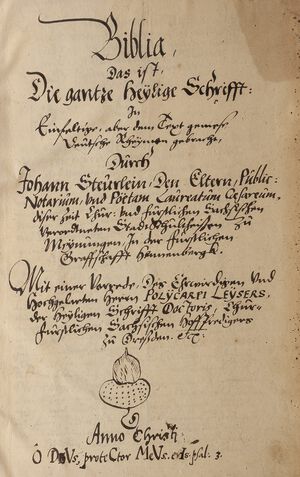 Biblia,
Das ist,
Die gantze Heylige Schrifft:
In
Einfaltige, aber dem Text gemese
Deutsche Rheymen gebracht,
Durch
Johann Steurlein, Den Eltern, Public:
Notarium, und Poëtam Laureatum Cæsareum,
dieser Zeit Chur: und Fürstlichen Sächsischen
Verordneten Stadtschultessen zu
Meynungen, In der Fürstlichen
Graffschafft Hennenbergk.
Mit einer Vorrede, Des Ehrwirdigen Und
Hochgelarten Herrn POLYCARPI LEYSERS,
der Heyligen Schrifft Doctoris, Chur-
fürstlichen Sächsischen Hoffpredigers
zu Dresden. etc.
Anno Christi:
O DeVs, proteCtor MeVs psal: 3.